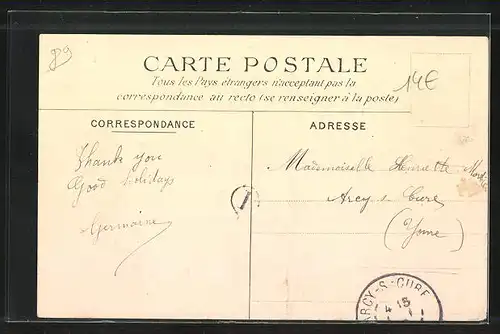 89
CARTE POSTALE
14€
Tous les Pays étrangers n'acceptant pas la
correspondance au recto (se renseigner à la poste)
CORRESPONDANCE
ADRESSE
Thank you
Good holidays
Germaine
Mademoiselle Henriette
Arcy s. Cure
(Yonne)
1
ARCY-S-CURE
4 15